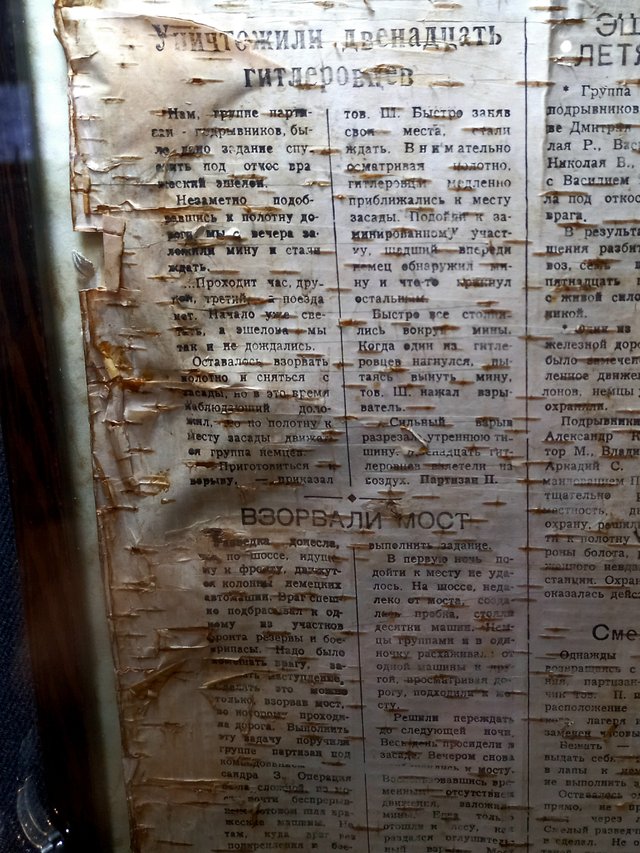 Уничтожили двенадцать
гитлеровцев
Нам, группе парти-
зан - подрывников, бы-
ло дано задание спу-
стить под откос вра
жеский эшелон.
Незаметно подоб-
равшись к полотну до-
роги мы с вечера за-
ложили мину и стали
ждать.
...Проходит час, дру-
гой, третий, а поезда
нет. Начало уже све-
тать, а эшелона мы
так и не дождались.
Оставалось взорвать
полотно и сняться с
засады, но в это время
наблюдающий доло-
жил, что по полотну к
месту засады движет
ся группа немцев.
— Приготовиться к
взрыву, — приказал
тов. Ш. Быстро заняв
свои места, стали
ждать. Внимательно
осматривая полотно,
гитлеровцы медленно
приближались к месту
засады. Подойдя к за-
минированному участ-
ку, шедший впереди
немец обнаружил ми-
ну и что-то крикнул
остальным.
Быстро все столпи-
лись вокруг мины.
Когда один из гитле-
ровцев нагнулся, пы-
таясь вынуть мину,
тов. Ш. нажал взры-
ватель.
Сильный взрыв
разрезал утреннюю ти-
шину. Двенадцать гит-
леровцев взлетели на
воздух. Партизан П.
ВЗОРВАЛИ МОСТ
Разведка донесла,
что по шоссе, идуще
му к фронту, движут-
ся колонны немецких
автомашин. Враг спеш-
но подбрасывал к од-
ному из участков
фронта резервы и бое-
припасы. Надо было
помешать врагу,
наступление.
Сделать это можно
только, взорвав мост,
по которому проходи-
ла дорога. Выполнить
эту задачу поручили
группе партизан под
сандра З. Операция
была сложной,
почти беспрерыв-
машины. Не
так, куда враг вез
подкрепления и бое-
выполнить задание.
В первую ночь по-
дойти к мосту не уда-
лось. На шоссе, неда-
леко от моста, созда
лась пробка, стояли
десятки машин. Нем-
цы группами и в оди-
ночку расхаживали от
одной машины к дру-
гой, просматривая до-
рогу, подходили к мо-
сту.
Решили переждать
до следующей ночи.
Весь день просидели в
засаде. Вечером снова
к мосту.
Воспользовавшись вре-
менным отсутствием
движения, заложили
мины. Едва только
отошли к лесу, как
раздался оглушитель-
ный взрыв. Мост
ЭШ
ЛЕТЯ
* Группа
подрывников
ве Дмитрия
лая Р., Вас
Николая В.,
с Василием
ла под откос
врага.
В результа
щения разбит
воз, семь
пятнадцать
с живой сило
никой.
* Один из
железной доро
было замечен
ленное движен
лонов, немцы
охраняли.
Подрывники
Александр К
тор М., Влади
Аркадий С.
мандованием П
тщательно
местность,
охрану, решили
ти к полотну
роны болота,
станции. Охра
оказалась дейс
Сме
Однажды
возвращаясь с
ния, партизан-
чик тов. П.
расположение
лагеря
замечен часовы
Бежать —
выдать себя
в лапы к
не выполнить з
Оставалось
прямо, не
через
Смелый разведч
сделал.